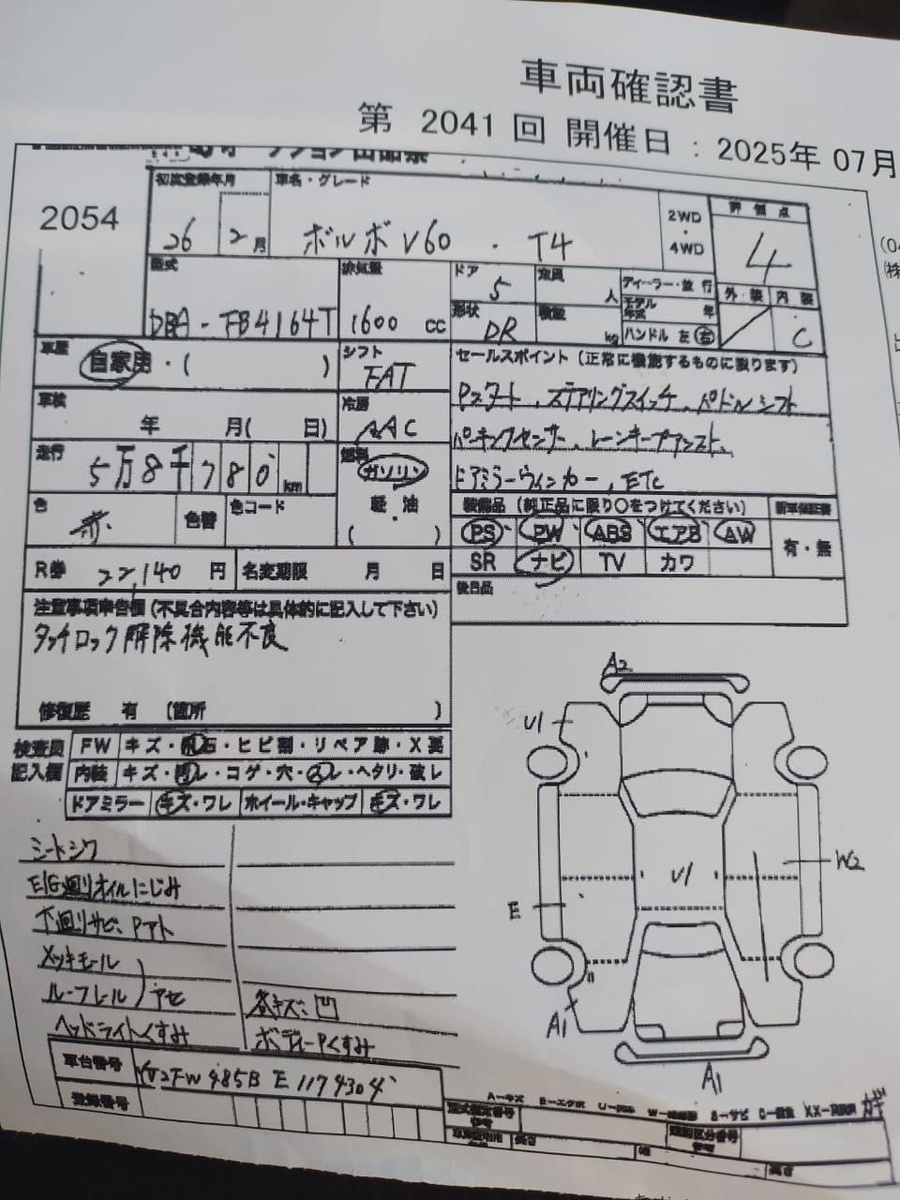 車両確認書
第 2041 回 開催日 : 2025年 07月
2054
初度登録年月 車名・グレード
26 2月 ボルボ V60 ・ T4
2WD ・ 4WD
評価点
4
外装 内装
C
型式 排気量 ドア 定員
DBA - FB4164T 1600 cc 5 人
形状 積載
DR kg
ディーラー・並行
モデル年式 年
ハンドル 左 右
車歴 自家用・( )
シフト FAT
セールスポイント (正常に機能するものに限ります)
Pスタート、ステアリングスイッチ、パドルシフト
パーキングセンサー、レーンキープアシスト、
ドアミラーウィンカー、ETC
車検 年 月( 日)
冷房 AAC
走行 5万8千780 km
燃料 ガソリン
軽・油
( )
色 赤 色替 色コード
装備品 (純正品に限り○をつけてください) 新車保証書
PS PW ABS エアB AW
SR ナビ TV カワ
有・無
R券 22,140 円 名変期限 月 日
後日品
注意事項申告欄 (不具合内容等は具体的に記入して下さい)
タッチロック解除機能不良
修復歴 有 (箇所 )
検査員記入欄
FW キズ・飛石・ヒビ割・リペア跡・X要
内装 キズ・汚レ・コゲ・穴・スレ・ヘタリ・破レ
ドアミラー キズ・ワレ ホイール・キャップ キズ・ワレ
シートシワ
E/G廻りオイルにじみ
下廻りサビ、Pアト
メッキモール
ルーフレール
アセ
ヘッドライトくすみ
各キズ、凹
ボディーPくすみ
A2
U1
U1
W2
E
A1
A1
車台番号
登録番号
A-キズ E-エクボ
S-サビ